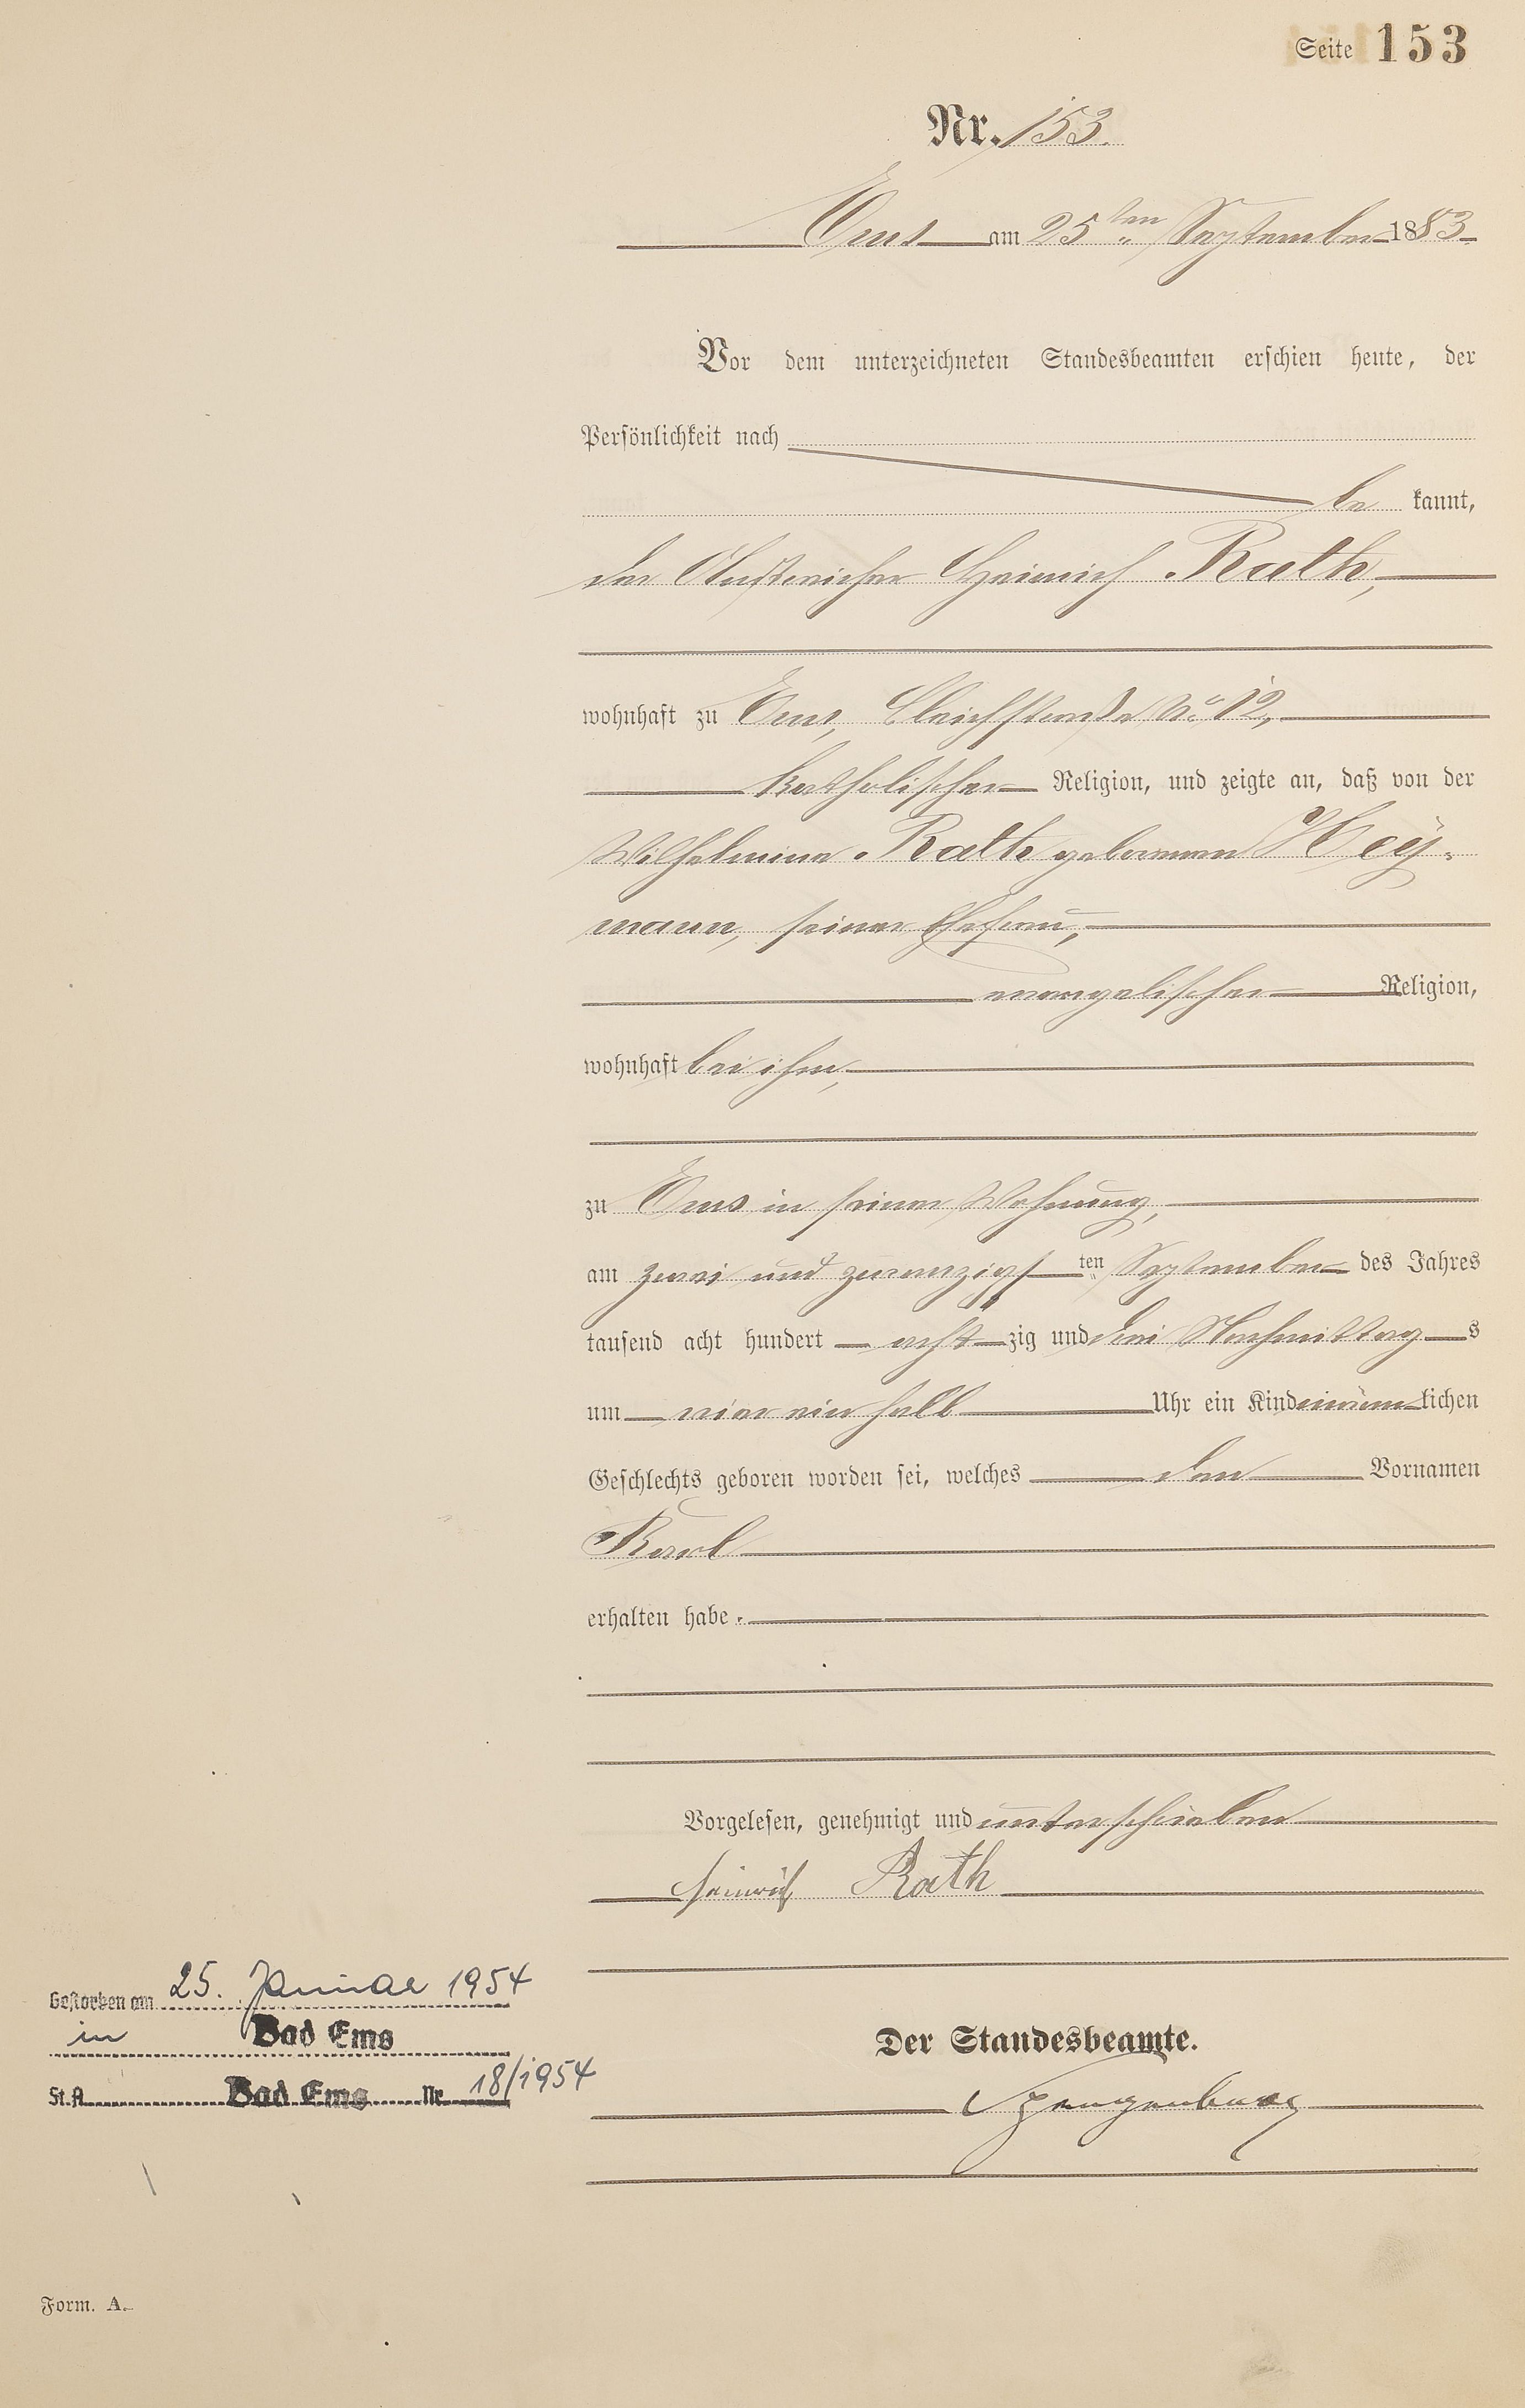 Seite 153
Nr. 153.
Ems am 25ten September 1883
Vor dem unterzeichneten Standesbeamten erschien heute, der
Persönlichkeit nach
be kannt,
der Anstreicher Heinrich Rath,
wohnhaft zu Ems, Bleichstraße No 12,
katholischer Religion, und zeigte an, daß von der
Wilhelmine Rath geborenen Hey-
mann, seiner Ehefrau,
evangelischer Religion,
wohnhaft bei ihm,
zu Ems in seiner Wohnung,
am zwei und zwanzigsten September des Jahres
tausend acht hundert achtzig und drei Nachmittags
um vier ein halb Uhr ein Kind männlichen
Geschlechts geboren worden sei, welches den Vornamen
Karl
erhalten habe.
Vorgelesen, genehmigt und unterschrieben
Heinrich Rath
Gestorben am 25. Januar 1954
in Bad Ems
St. A. Bad Ems Nr. 18/1954
Der Standesbeamte.
Spangenberg
Form. A.